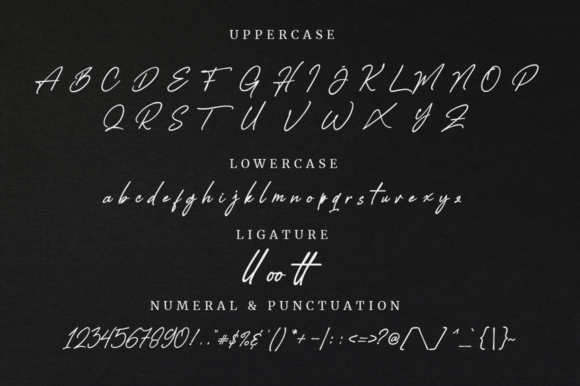 UPPERCASE
A B C D E F G H I J K L M N O P
Q R S T U V W X Y Z
LOWERCASE
a b c d e f g h i j k l m n o p q r s t u v e x y z
LIGATURE
ll oo tt
NUMERAL & PUNCTUATION
1234567890!..."#$%&'()*+-/:;<=>?@[\]^_`{|}~